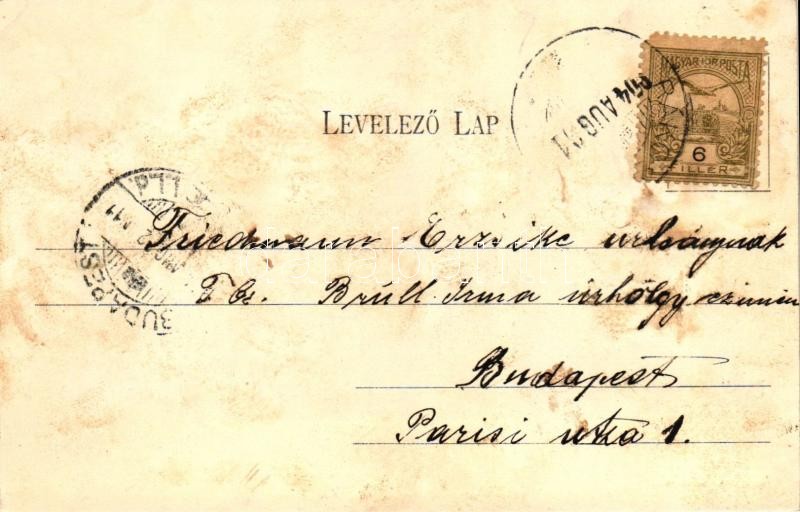 LEVELEZŐ LAP
MAGYAR KIR. POSTA
6
FILLÉR
904 AUG 11
BUDAPEST
Friedmann Erzsike urleánynak
Tbs. Brüll Irma úrhölgy czimén
Budapest
Parisi utza 1.